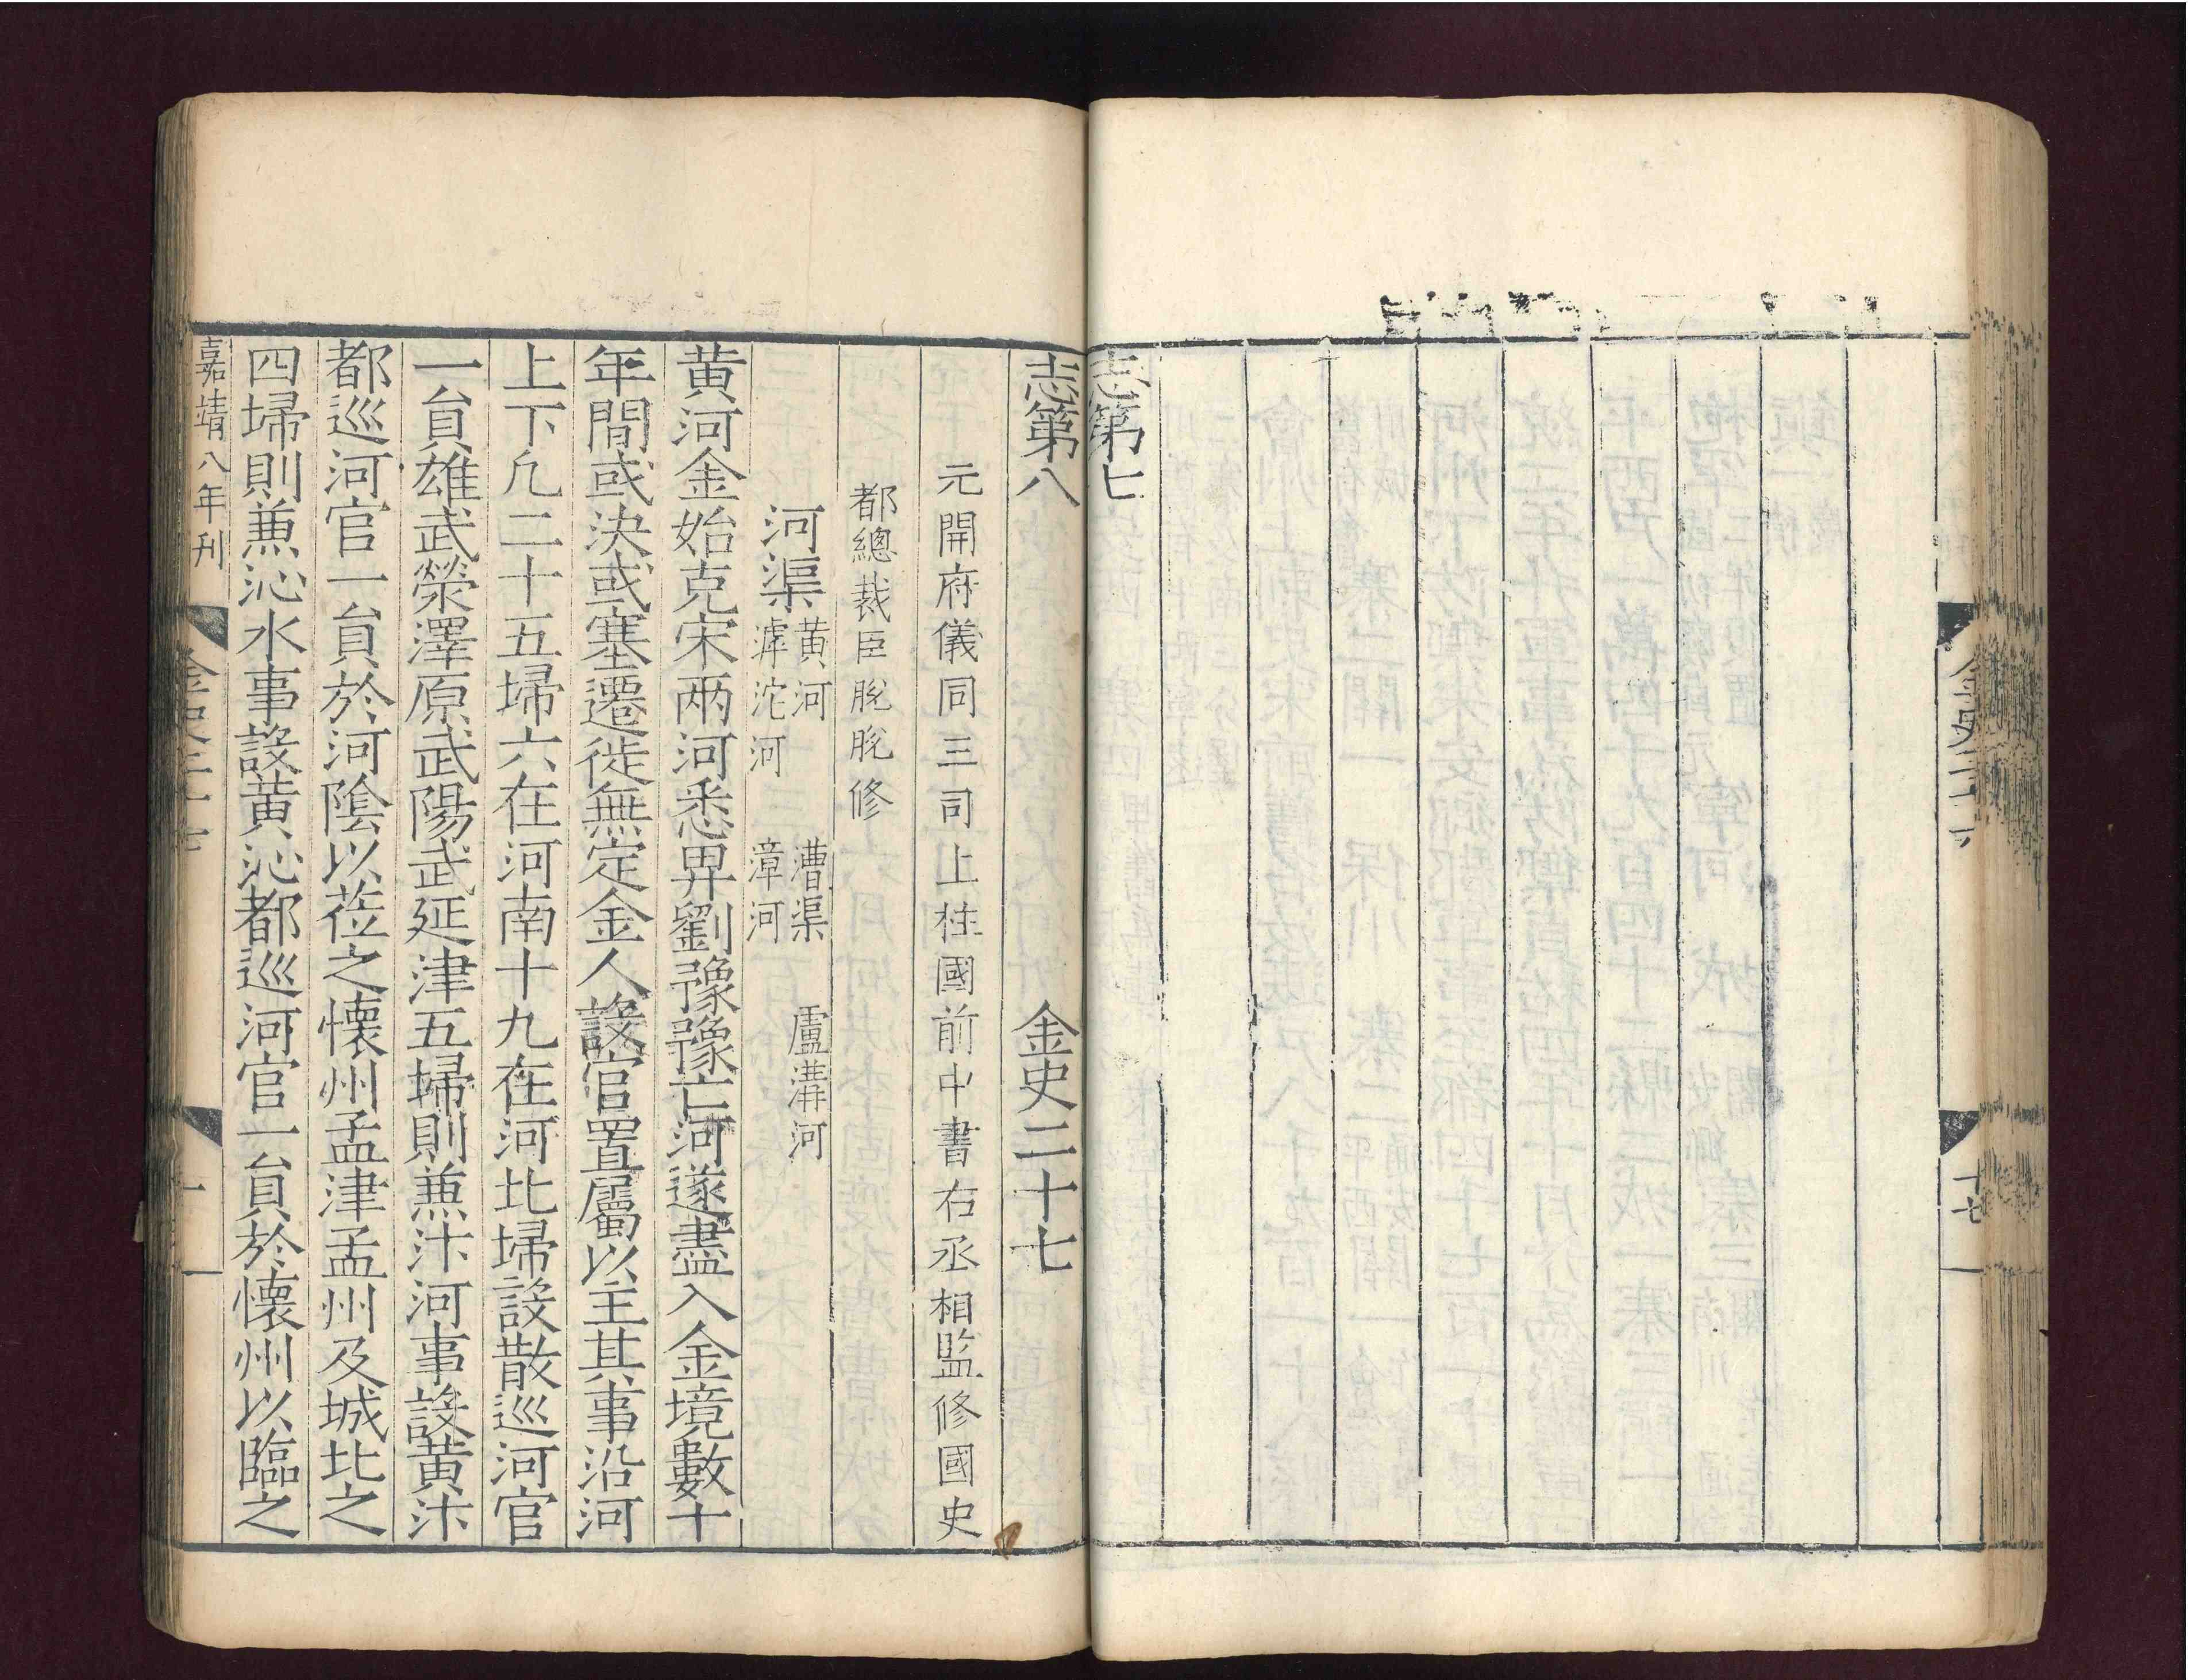 金史二十六
十七
志第七
志第八 金史二十七
元開府儀同三司上柱國前中書右丞相監修國史
都總裁臣脫脫修
河渠 黃河 漕渠 盧溝河
滹沱河 漳河
黃河金始克宋兩河悉畀劉豫豫亡河遂盡入金境數十
年間或決或塞遷徙無定金人設官置屬以主其事沿河
上下凢二十五埽六在河南十九在河北埽設散巡河官
一貟雄武滎澤原武陽武延津五埽則兼汴河事設黃汴
都巡河官一貟於河隂以莅之懷州孟津孟州及城北之
四埽則兼沁水事設黃沁都巡河官一貟於懷州以臨之
嘉靖八年刋
金史二十七
一